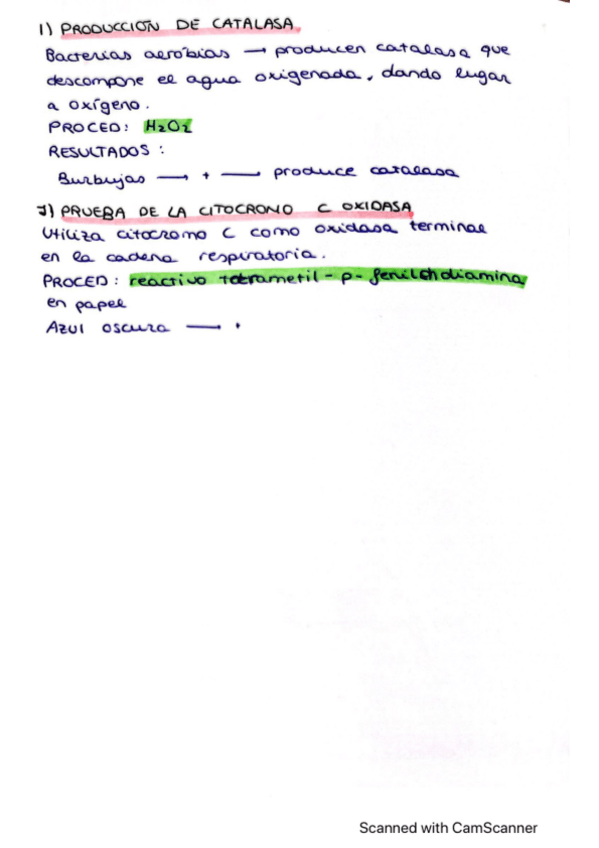 I) PRODUCCIÓN DE CATALASA
Bacterias aerobias → producen catalasa que
descompone el agua oxigenada, dando lugar
a oxígeno.
PROCED: H2O2
RESULTADOS:
Burbujas → + → produce catalasa
J) PRUEBA DE LA CITOCROMO C OXIDASA
Utiliza citocromo C como oxidasa terminal
en la cadena respiratoria.
PROCED: reactivo tetrametil-p-fenilendiamina
en papel
Azul oscura → +
Scanned with CamScanner